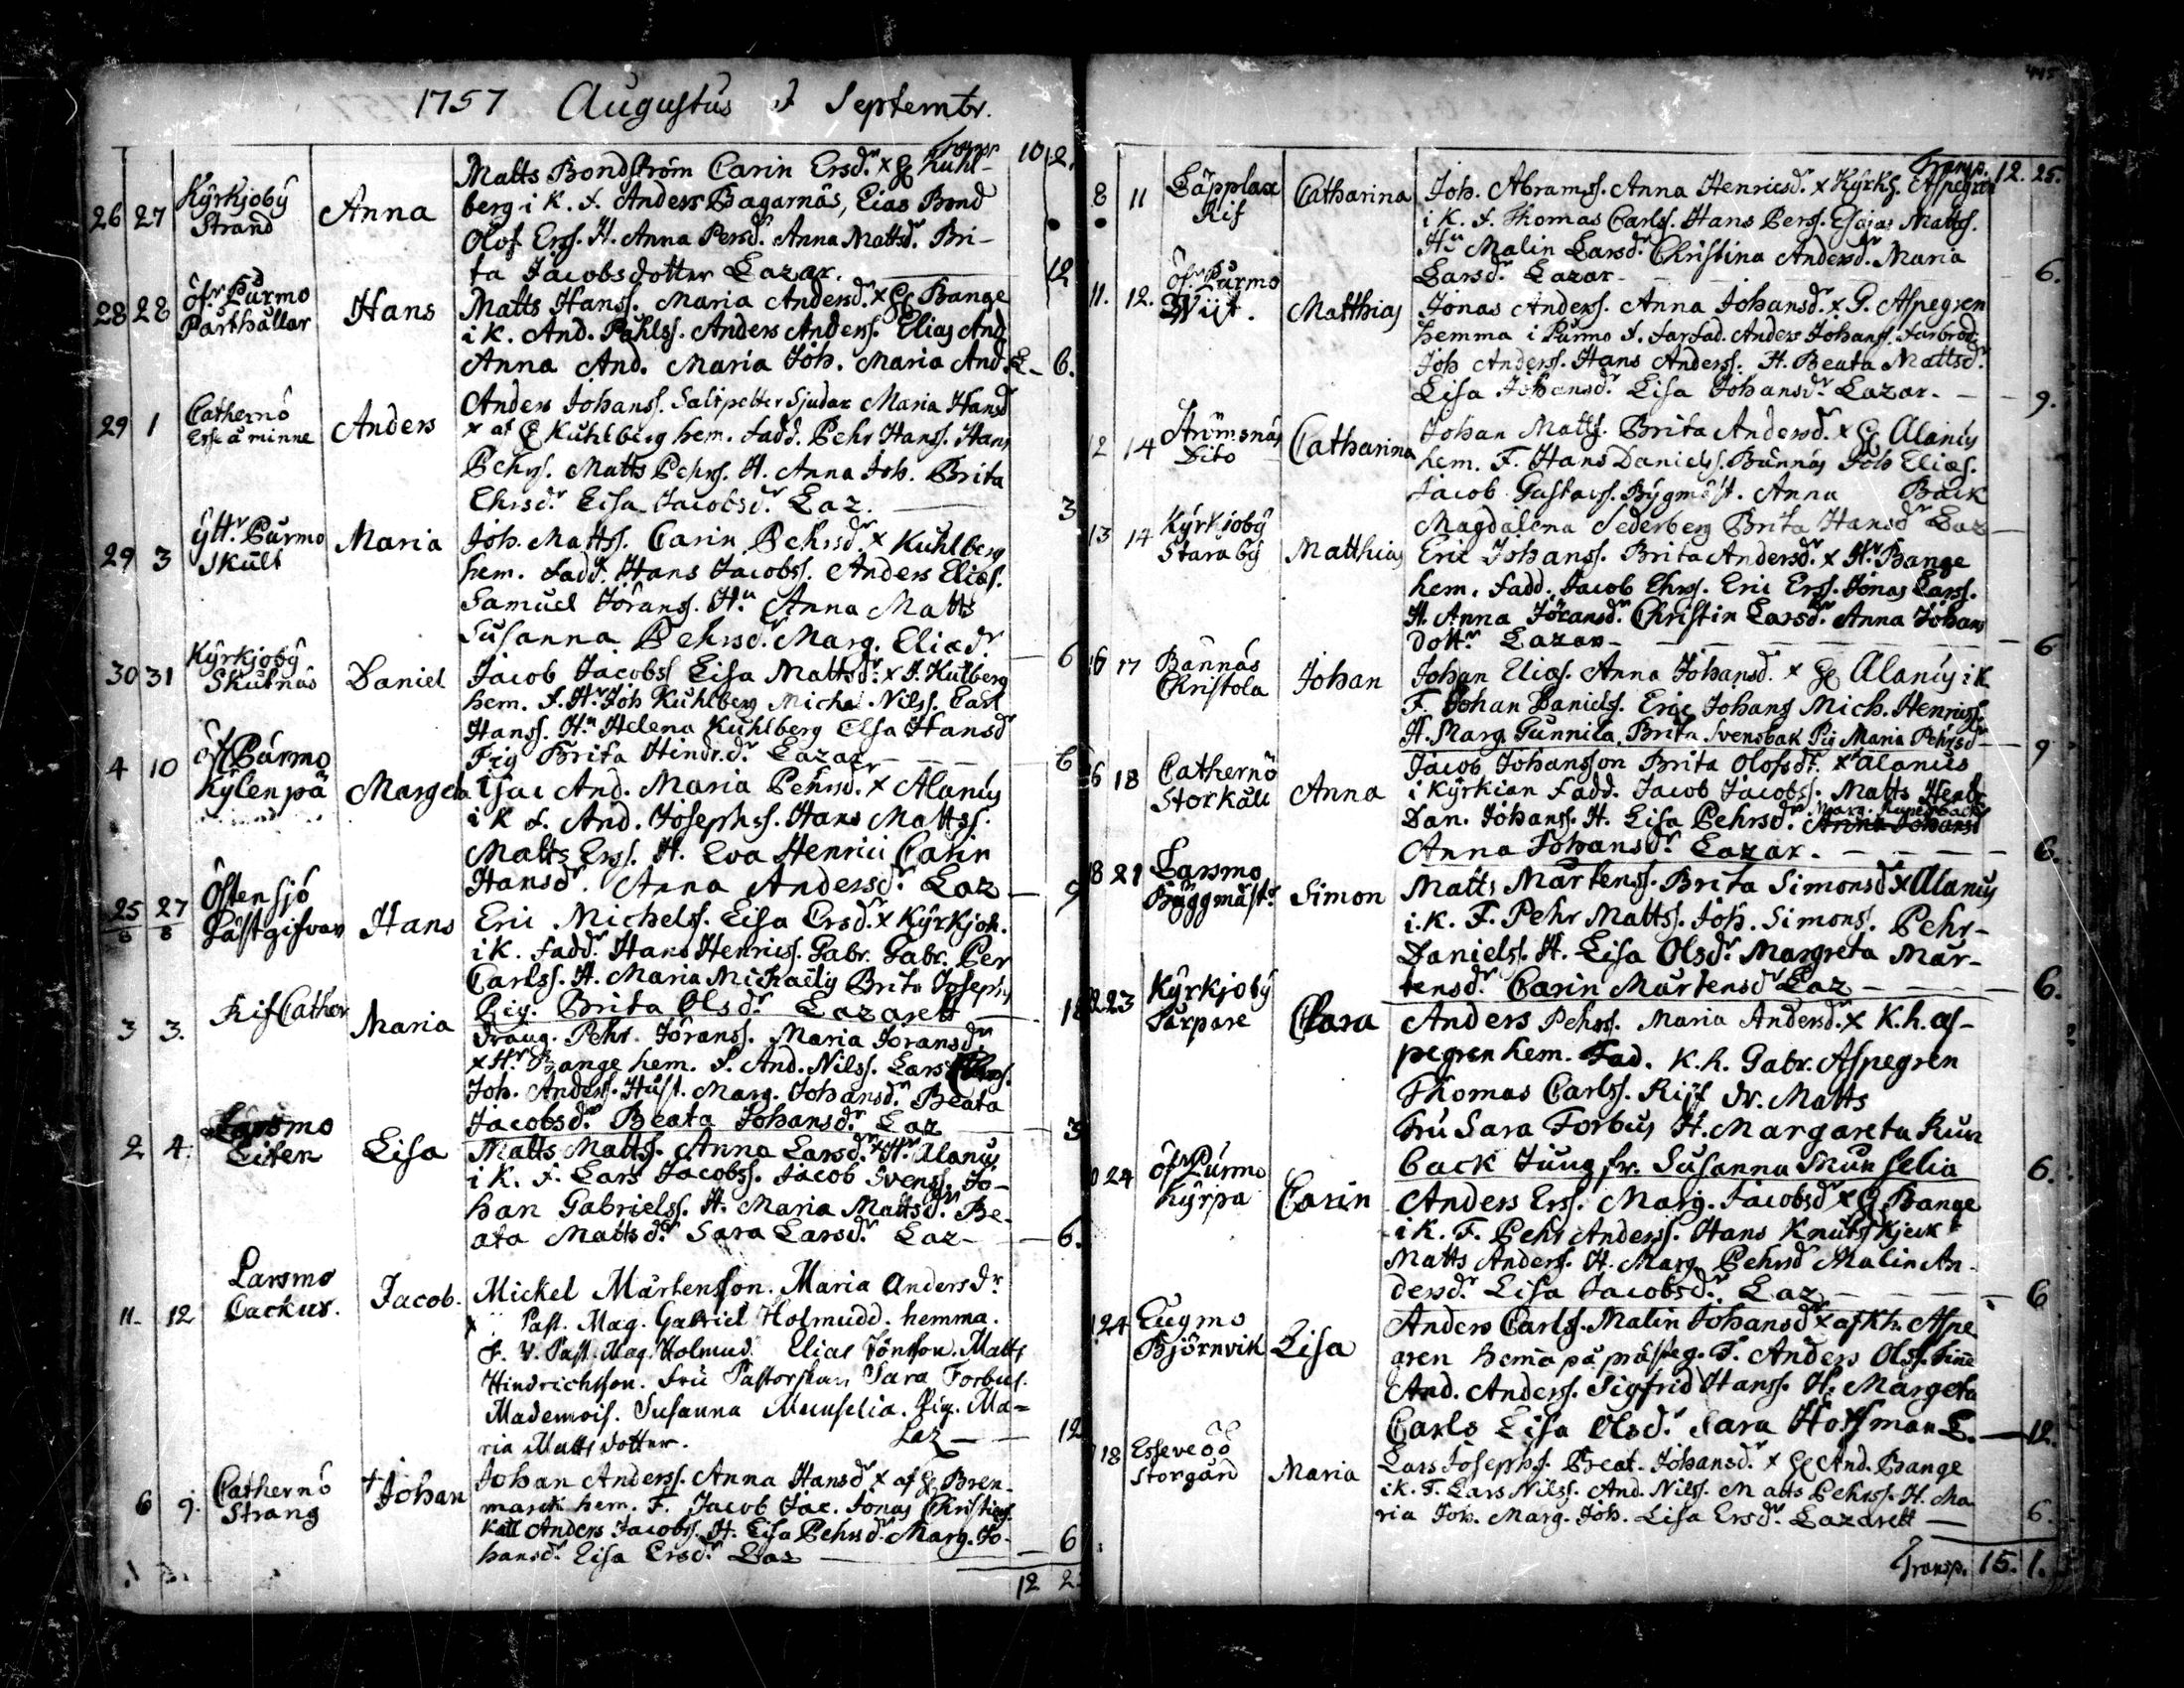 1757 Augustus & Septembr.
Transp. 10 2.
26 27 Kyrkjoby Strand Anna Matts Bondström Carin Ersdr x Kuhl-
berg i K. F. Anders Bagarnäs, Elias Bond
Olof Erss. H. Anna Persd. Anna Mattsd. Bri-
ta Jacobsdotter Lazar. 12
28 28 Öfr Purmo Parthällar Hans Matts Hanss. Maria Andersd. x Bange
i K. And. Påhlss. Anders Anderss. Elias And
Anna And. Maria Joh. Maria And. L- 6.
29 1 Cathernö Esse åminne Anders Anders Johanss. Saltpetter Sjudar Maria Hansdr
x af Kuhlberg hem. Fadd. Pehr Hanss. Hans
Pehrs. Matts Pehrss. H. Anna Joh. Brita
Ehrsdr Lisa Jacobsdr Laz. 3
29 3 Ytt. Purmo Skult Maria Joh. Mattss. Carin Pehrsdr x Kuhlberg
hem. Fadd. Hans Jacobss. Anders Elias.
Samuel Jöranss. Hu Anna Matts
Susanna Pehrsdr Marg. Eliadr 6
30 31 Kyrkjoby Skutnäs Daniel Jacob Jacobss Lisa Mattsdr x J. Kulberg
hem. F. Hr Joh Kuhlberg Michel Nilss. Carl
Hanss. Hu Helena Kuhlberg Elsa Hansdr
Pig Brita Hindr.dr Lazar 6
4 10 Öf Purmo Kylenpä Margeta Isac And. Maria Pehrsdr x Alanus
i K F. And. Josephss. Hans Mattss.
Matts Erss. H. Eva Henrici Carin
Hansdr. Anna Andersdr Laz 9
25/8 27/8 Östensjö Gästgifvar Hans Eric Michelss. Lisa Ersdr x Kyrkjoh.
i K. Fadd. Hans Henrics. Gabr. Gabr. Per
Carlss. H. Maria Michaëlis Brita Josephs
Pig. Brita Olsdr Lazarett
3 3. Rif Cather Maria Draug. Pehr Jöranss. Maria Joransdr
x Hr Bange hem. F. And. Nilss. Lars
Joh. Anderss. Hust. Marg. Johansdr Beata
Jacobsdr Beata Johansdr Laz 3
2 4. Larsmo Eisten Lisa Matts Mattss. Anna Larsdr x Hr Alanus
i K. F. Lars Jacobss. Jacob Svenss. Jo-
han Gabrielss. H. Maria Mattsdr Be-
ata Mattsdr Sara Larsdr Laz- 6.
11. 12 Larsmo Cackur. Jacob. Mickel Mårtensson. Maria Andersdr
x Past. Mag. Gabriel Holmudd. hemma.
F. V. Past. Mag. Holmud. Elias Jönsson. Matts
Hindrichsson. Fru Pastorskan Sara Forbus.
Mademois. Susanna Munselia. Pig. Ma=
ria Mattsdotter. Laz 12
6 9. Cathernö Strang +Johan Johan Anderss. Anna Hansdr x af Bren-
marck hem. F. Jacob Jac. Jonas Christiers.
Kåll Anders Jacobss. H. Lisa Pehrsdr Marg. Jo-
hansdr Lisa Ersdr Laz 6
12
445
Transp. 12. 25.
8 11 Läpplax Rif Catharina Joh. Abramss. Anna Henricsdr x Kyrkh. Aspegren
i K. F. Thomas Carlss. Hans Perss. Esajas Mattss.
Hu Malin Larsdr Christina Andersdr Maria
Larsdr Lazar- 6.
11. 12. Öfr Purmo Wiit. Matthias Jonas Anderss. Anna Johansdr x G. Aspegren
hemma i Purmo F. Farfad. Anders Johanss. Farbrod.
Joh Anderss. Hans Anderss. H. Beata Mattsdr
Lisa Johansdr Lisa Johansdr Lazar. 9.
12 14 Strömsnäs Dito Catharina Johan Mattss. Brita Andersdr x Alanus
hem. F. Hans Danielss. Bännäs Joh Elias.
Jacob Gustavss. Bygmäst. Anna Back
Magdalena Sederberg Brita Hansdr Laz
13 14 Kyrkjoby Staraby Matthias Eric Johanss. Brita Andersdr x Hr Bange
hem. Fadd. Jacob Ehrss. Eric Erss. Jonas Larss.
H. Anna Jöransdr Christin Larsdr Anna Johans
dottr Lazar- 6
16 17 Bännäs Christola Johan Johan Elias. Anna Johansdr x Alanus i K
F. Johan Danielss. Eric Johans Mich. Henricss.
H. Marg Gunnila. Brita Svensbak Pig Maria Pehrsdr 9
16 18 Cathernö Storkåll Anna Jacob Johansson Brita Olofsdr. x Alanus
i Kyrkian Fadd. Jacob Jacobss. Matts Henr.
Dan. Johanss. H. Lisa Pehrsdr. Marg. Runeback Anna Johansdr
Anna Johansdr Lazar. 6.
18 21 Larsmo Byggmäst. Simon Matts Mårtenss. Brita Simonsdr x Alanus
i. K. F. Pehr Mattss. Joh. Simons. Pehr-
Danielss. H. Lisa Olsdr Margreta Mår-
tensdr Carin Mårtensdr Laz 6.
22 23 Kyrkjoby Purpare Clara Anders Pehrss. Maria Andersdr x K.h. As-
pegren hem. Fad. K.h. Gabr. Aspegren
Thomas Carlss. Rijf Dr. Matts
Fru Sara Forbus H. Margareta Run
back Jungfr. Susanna Munselia 6.
24 Öfr Purmo Kyrpa Carin Anders Erss. Marg. Jacobsdr x Bange
i K. F. Pehr Anderss. Hans Knutss Kjeck
Matts Anderss. H. Marg. Pehrsdr Malin An-
dersdr Lisa Jacobsdr Laz 6
24 Eugmo Björnvik Lisa Anders Carlss. Malin Johansdr x af Kh. Aspe
gren hema på prästeg. F. Anders Olss. Finne
And. Anderss. Sigfrid Hanss. H. Margeta
Carls Lisa Olsdr Sara Hoffman L. 12.
18 Esseveöö Storgård Maria Lars Josephss. Beat. Johansdr x And. Bange
i K. F. Lars Nilss. And. Nilss. Matts Pehrss. H. Ma
ria Joh. Marg. Joh. Lisa Ersdr Lazarett 6.
Transp. 15. 1.